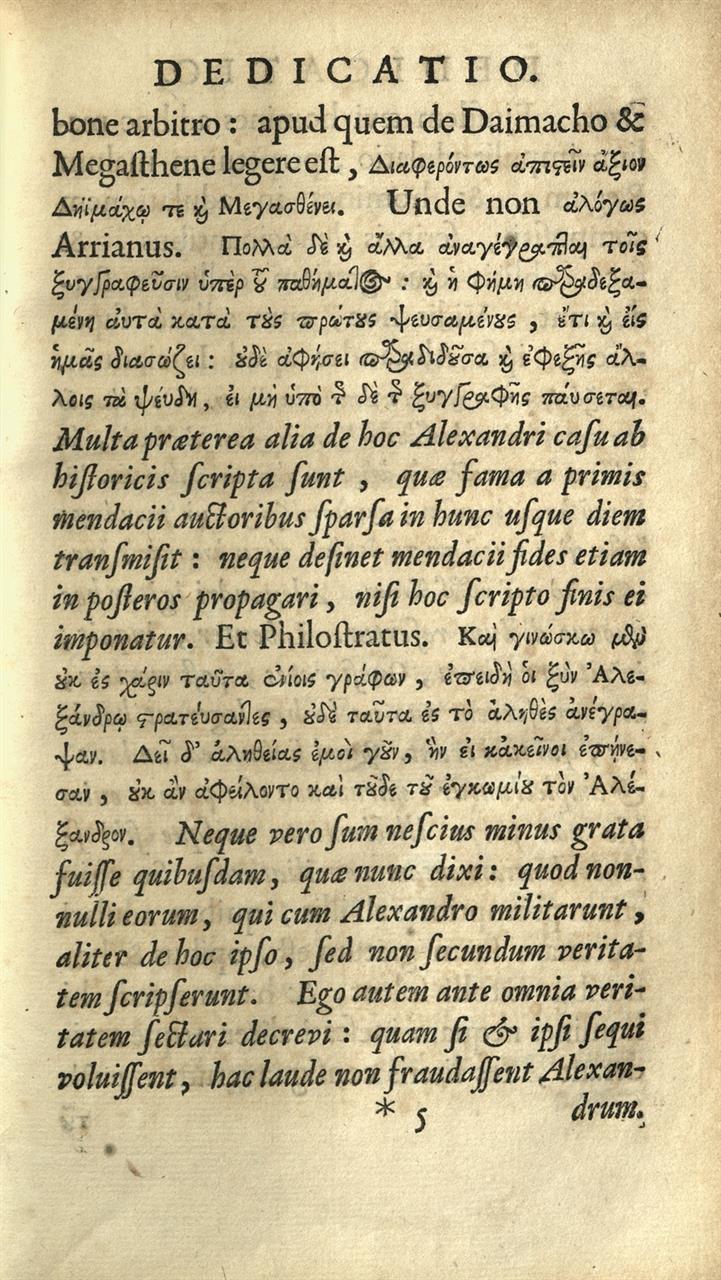 DEDICATIO.
bone arbitro: apud quem de Daimacho &
Megasthene legere est, Διαφερόντως ἀπιστεῖν ἄξιον
Δηϊμάχῳ τε ϗ Μεγασθένει. Unde non ἀλόγως
Arrianus. Πολλὰ δὲ ϗ ἄλλα ἀναγέγραπται τοῖς
ξυγγραφεῦσιν ὑπὲρ τοῦ παθήματος: ϗ ἡ φήμη παραδεξα-
μένη αὐτὰ κατὰ τὺς πρώτυς ψευσαμένυς, ἔτι ϗ εἰς
ἡμᾶς διασώζει: ȣδὲ ἀφήσει παραδιδοῦσα ϗ ἐφεξῆς ἄλ-
λοις τὰ ψεύδη, εἰ μὴ ὑπὸ τῆς δὲ τῆς ξυγγραφῆς παύσεται.
Multa præterea alia de hoc Alexandri casu ab
historicis scripta sunt, quæ fama a primis
mendacii auctoribus sparsa in hunc usque diem
transmisit: neque desinet mendacii fides etiam
in posteros propagari, nisi hoc scripto finis ei
imponatur. Et Philostratus. Καὶ γινώσκω μὲν
ȣκ ἐς χάριν ταῦτα ἐνίοις γράφων, ἐπειδὴ ὁι ξὺν Ἀλε-
ξάνδρῳ στρατεύσαντες, ȣδὲ ταῦτα ἐς τὸ ἀληθὲς ἀνέγρα-
ψαν. Δεῖ δ' ἀληθείας ἐμοὶ γȣ͂ν, ἣν εἰ κἀκεῖνοι ἐπῄνε-
σαν, ȣκ ἂν ἀφείλοντο καὶ τȣ͂δε τȣ͂ ἐγκωμίȣ τὸν Ἀλέ-
ξανδρον. Neque vero sum nescius minus grata
fuisse quibusdam, quæ nunc dixi: quod non-
nulli eorum, qui cum Alexandro militarunt,
aliter de hoc ipso, sed non secundum verita-
tem scripserunt. Ego autem ante omnia veri-
tatem sectari decrevi: quam si & ipsi sequi
voluissent, hac laude non fraudassent Alexan-
* 5 drum.